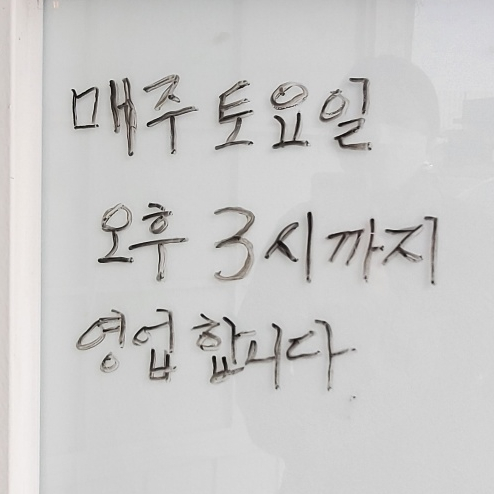 매주 토요일
오후 3시까지
영업합니다.